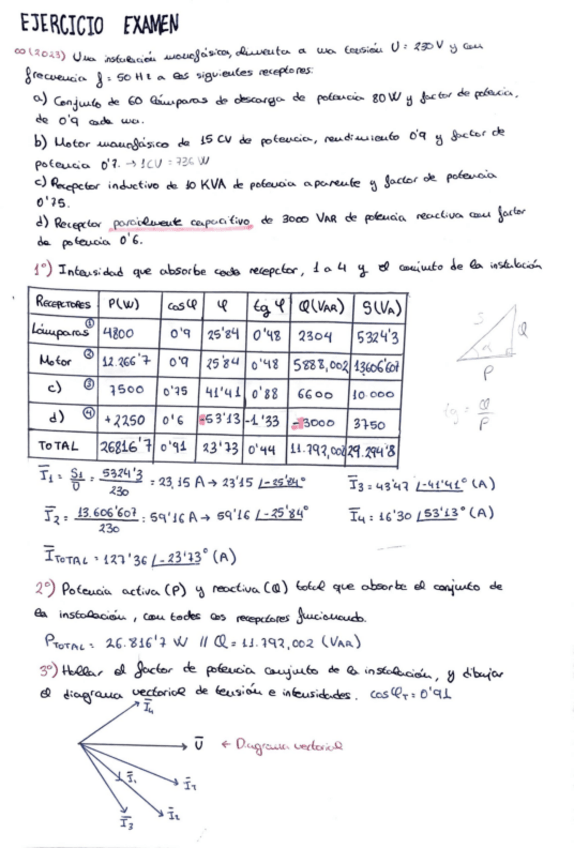 EJERCICIO EXAMEN
∞(2023) Una instalación monofásica, alimenta a una tensión U = 230V y con
frecuencia f = 50 Hz a los siguientes receptores:
a) Conjunto de 60 lámparas de descarga de potencia 80W y factor de potencia,
de 0'9 cada una.
b) Motor monofásico de 15 CV de potencia, rendimiento 0'9 y factor de
potencia 0'9. → 1CV = 736 W
c) Receptor inductivo de 10 KVA de potencia aparente y factor de potencia
0'75.
d) Receptor parcialmente capacitivo de 3000 VAR de potencia reactiva con factor
de potencia 0'6.
1º) Intensidad que absorbe cada receptor, 1 a 4 y el conjunto de la instalación
RECEPTORES P(W) cosφ φ tg φ Q(VAR) S(VA)
Lámparas ① 4800 0'9 25'84 0'48 2304 5324'3
Motor ② 12.266'7 0'9 25'84 0'48 5888,002 13606'607
c) ③ 7500 0'75 41'41 0'88 6600 10.000
d) ④ +2250 0'6 -53'13 -1'33 -3000 3750
TOTAL 26816'7 0'91 23'73 0'44 11.792,002 29.294'8
S
Q
α
P
tg = Q/P
I₁ = S₁/U = 5324'3/230 = 23,15 A → 23'15 /-25'84° I₃ = 43'47 /-41'41° (A)
I₂ = 13.606'607/230 = 59'16 A → 59'16 /-25'84° I₄ = 16'30 /53'13° (A)
I TOTAL = 127'36 /-23'73° (A)
2º) Potencia activa (P) y reactiva (Q) total que absorbe el conjunto de
la instalación, con todos los receptores funcionando.
PTOTAL = 26.816'7 W // Q = 11.792,002 (VAR)
3º) Hallar el factor de potencia conjunto de la instalación, y dibujar
el diagrama vectorial de tensión e intensidades. cosφT = 0'91
I₄
U ← Diagrama vectorial
I₁
I₂
I₃